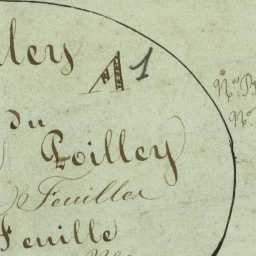 lley A 1
du
Poilley
Feuilles
Feuille